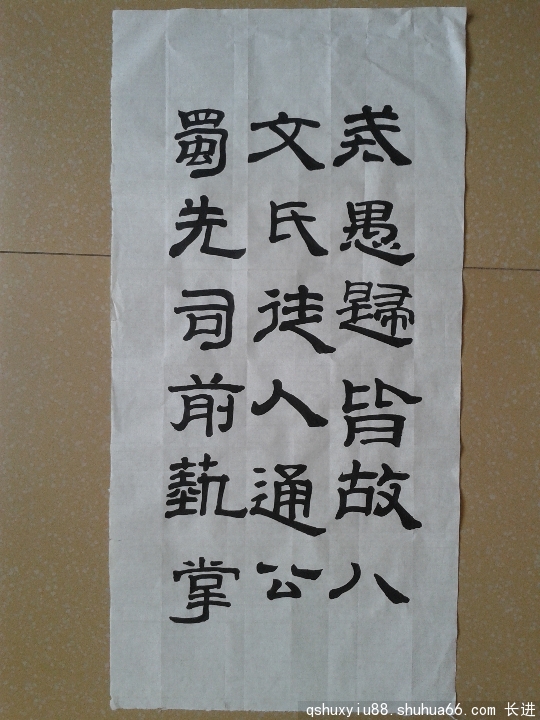 愚歸皆故八
文氏徒人通公
蜀先司前蓺掌
qshuxyiu88.shuhua66.com 长进